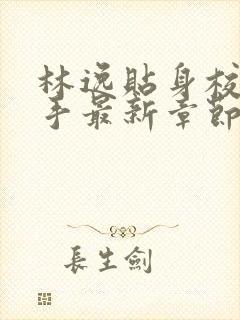 林逸貼身校
手最新章節
長生劍